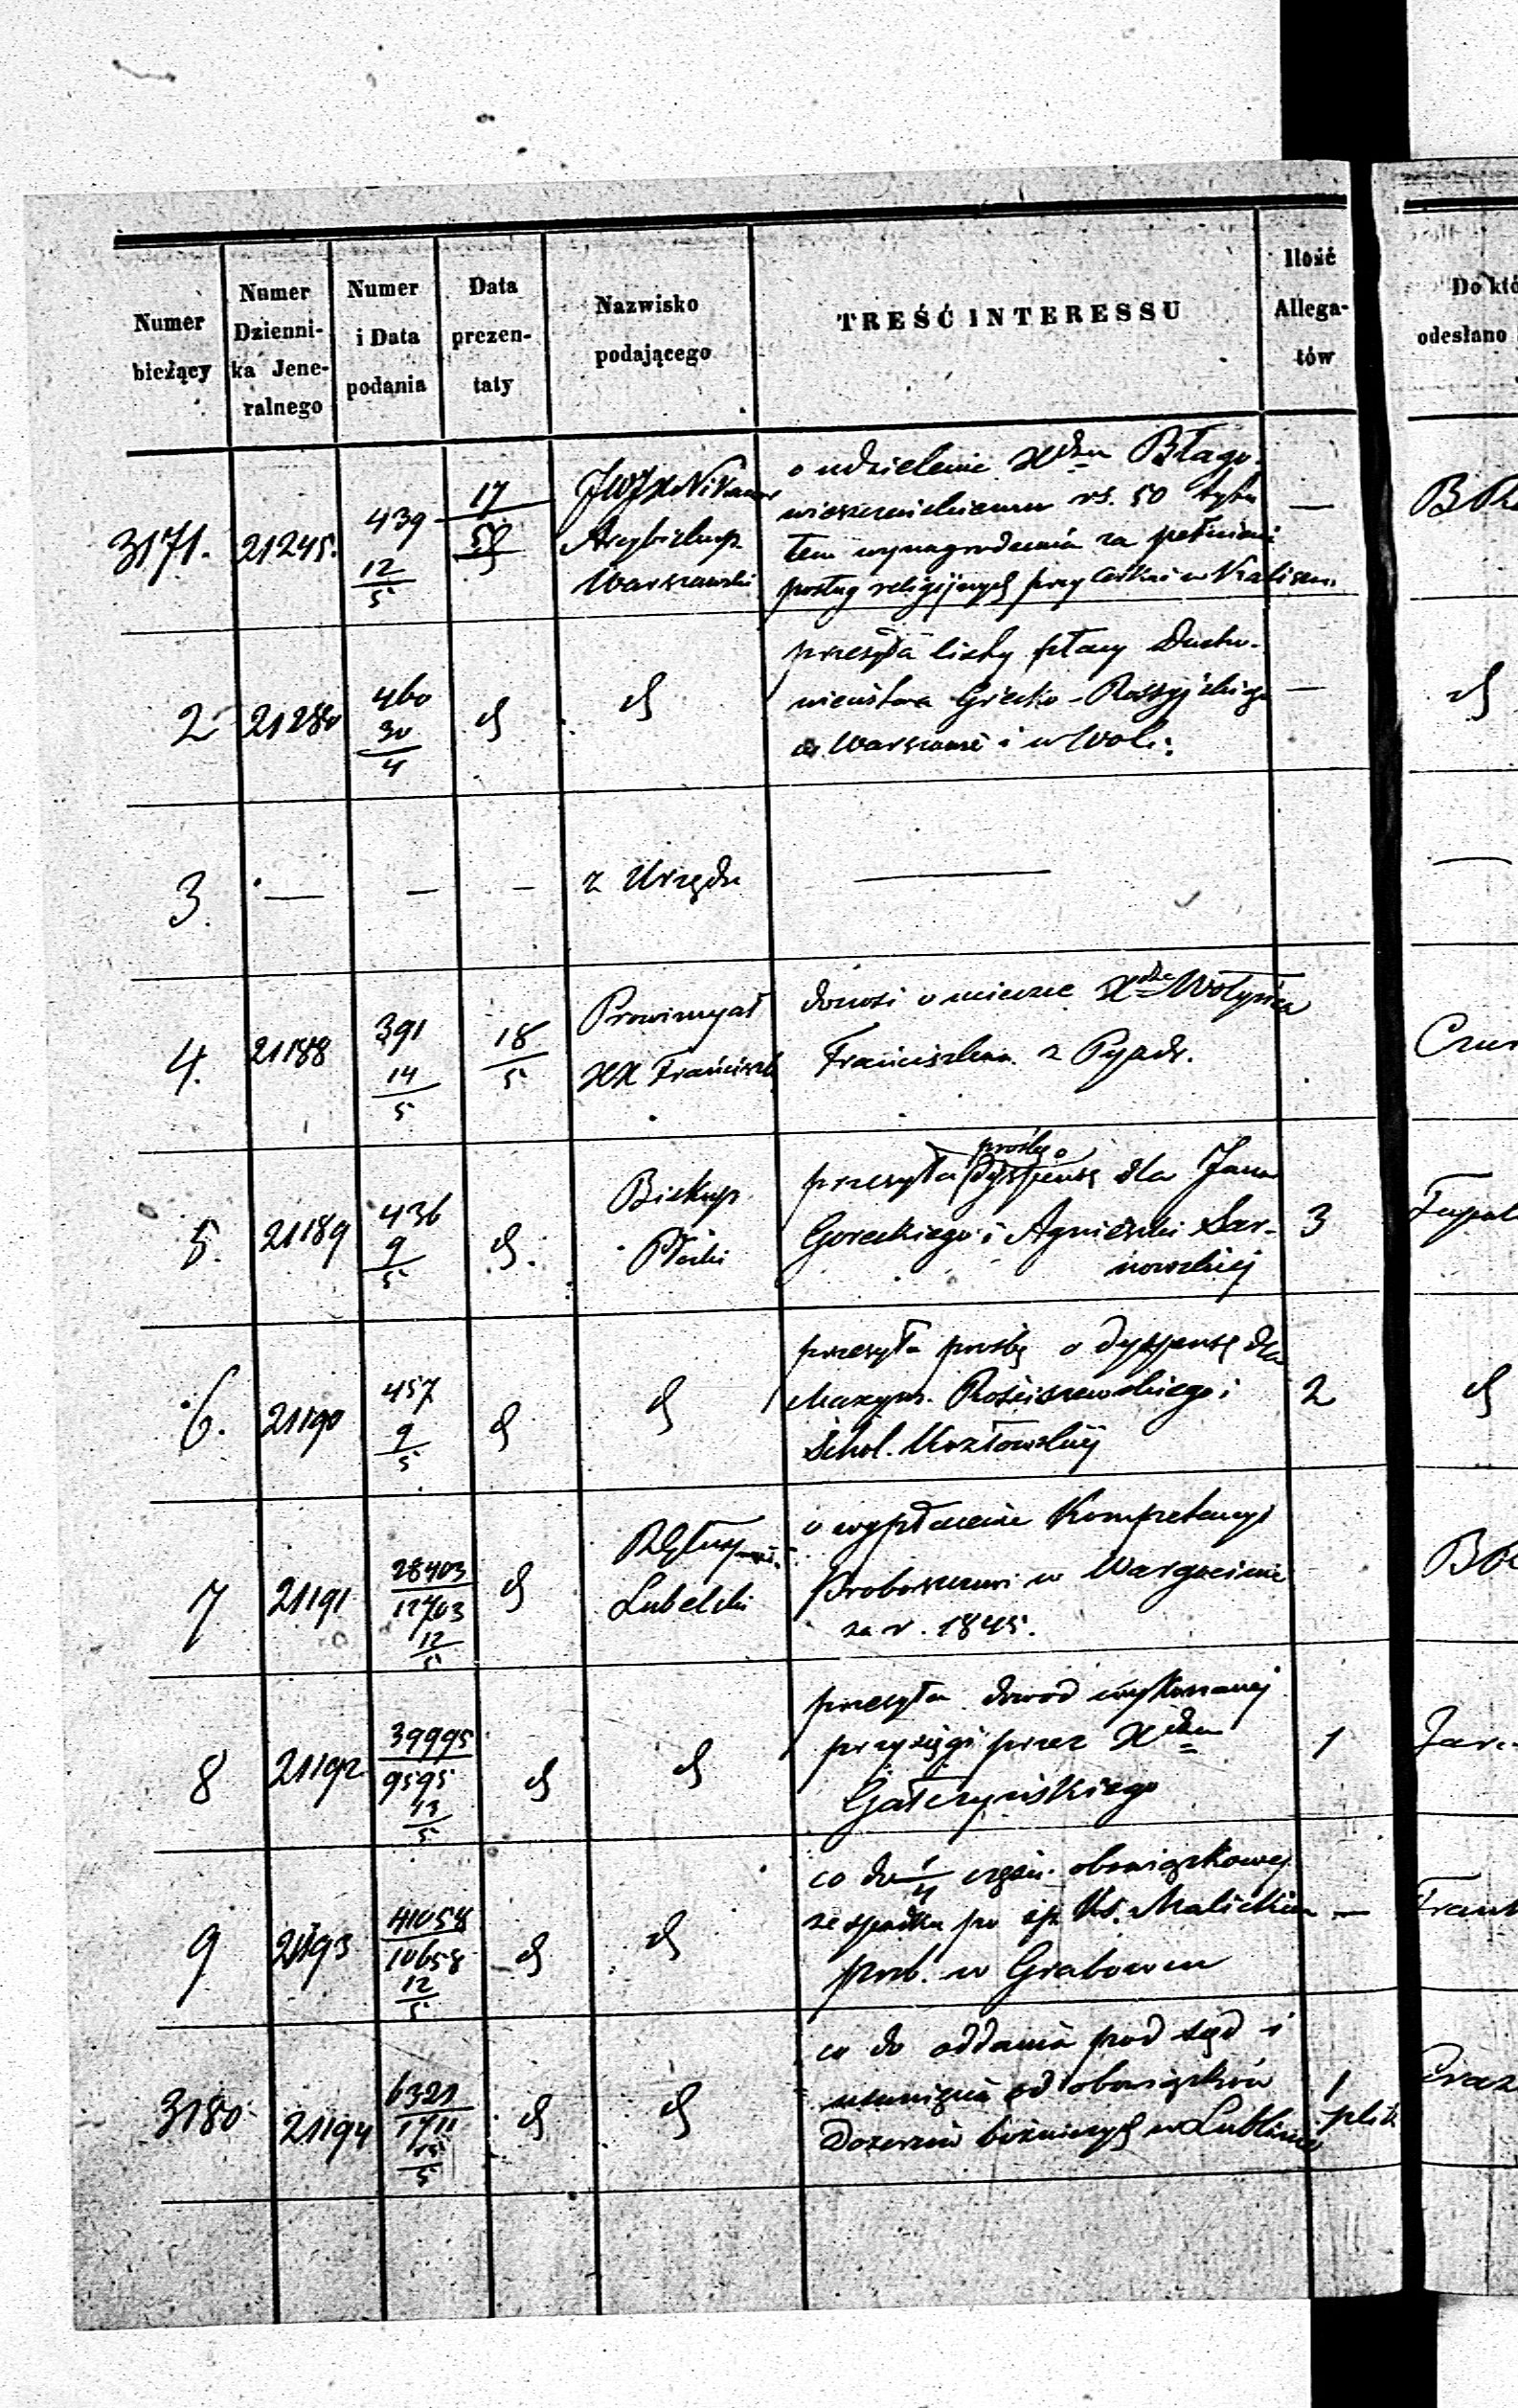 Numer bieżący
Numer Dzienni- ka Jene- ralnego
Numer i Data podania
Data prezen- taty
Nazwisko podającego
TREŚĆ INTERESSU
Ilość Allega- tów
Do któ
odesłano
3171. 21245. 439 12/5 17/5
JWJX Nikanor
Arcybiskup
Warszawski
o udzielenie Xdzu Błago-
wieszczeńskiemu rs. 50 tytu
łem wynagrodzenia za pełnienie
posług religijnych przy Cerkwi w Kaliszu.
—
2 21280 460 30/4 d d
przesyła listy płacy Ducho-
wieństwa Grecko-Rossyjskiego
w Warszawie i w Woli.
— d
3. — — — z Urzędu —
4. 21188 391 14/5 18/5
Prowincyał
XX Francisz
donosi o ucieczce Xdza Wołyńca
Franciszkana z Pyzdr.
5. 21189 436 9/5 d.
Biskup
Płocki
prośbę o
przesyła dyspensę dla Jana
Goreckiego i Agnieszki Sar-
nowskiej
3
6. 21190 457 9/5 d d
przesyła prośbę o dyspensę dla
Maxym. Rościszewskiego i
Schol. Kozłowskiej
2 d
7 21191 28403/12703 12/5 d
Lubelski
o wypłacenie Kompetencyi
Proboszczowi w
za r. 1845.
8 21192 39995/9595 13/5 d d
przesyła dowod wykonanej
przysięgi przez Xdza
Gałczyńskiego
1
9 21193 41058/10658 12/5 d d
co do 1/4 części obowiązkowej
ze spadku po śp. Ks. Malickim
prob. w Grabowcu
—
3180 21194 6321/1711 15/5 d d
co do oddania pod sąd i
usunięcia od obowiązków
Dozorców bożniczych w Lublinie
1
plik